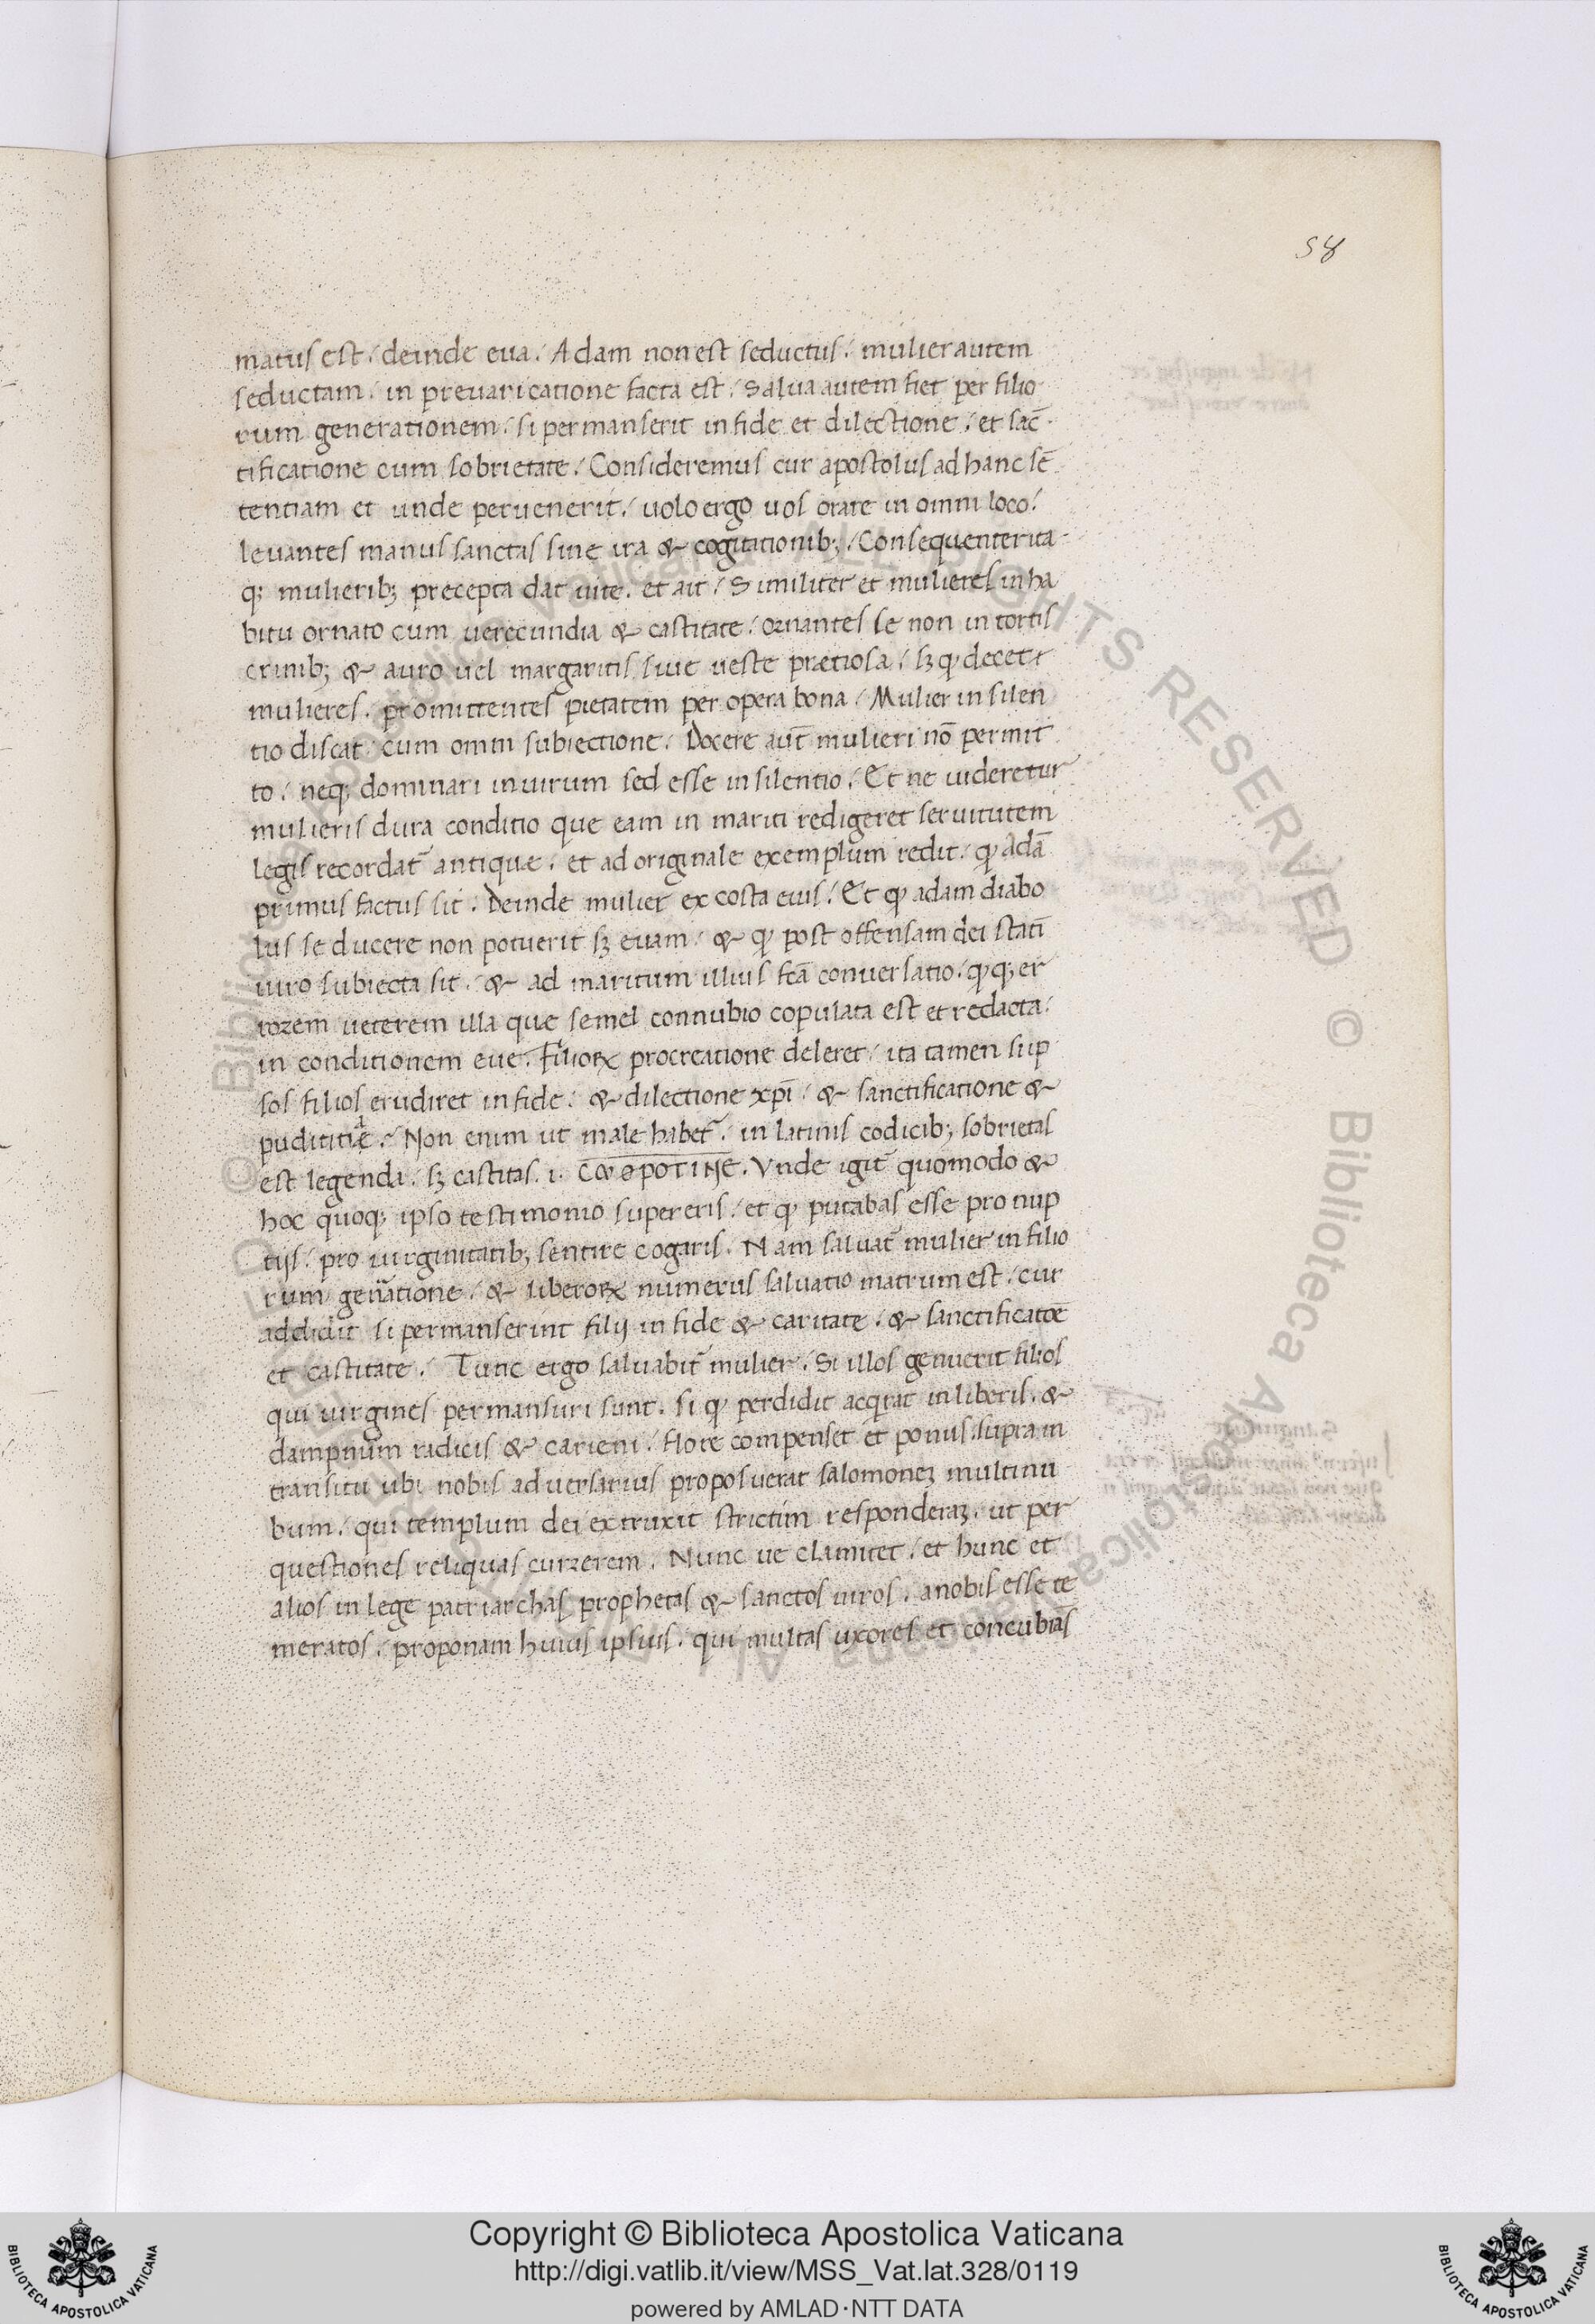 58
matus est. deinde eua. Adam non est seductus. mulier autem
seductam. in preuaricatione facta est. Salua autem fiet per filio
rum generationem. si permanserit in fide et dilectione. et sāc
tificatione cum sobrietate. Consideremus cur apostolus ad hanc sē
tentiam et unde peruenerit. uolo ergo uos orare in omni loco.
leuantes manus sanctas sine ira & cogitationib;. Consequenter ita
q; mulierib; precepta dat uite. et ait. Similiter et mulieres in ha
bitu ornato cum uerecundia & castitate. ornantes se non in tortis
crinib; & auro uel margaritis siue ueste prætiosa. sꝫ qđ decet
mulieres. promittentes pietatem per opera bona. Mulier in silen
tio discat. cum omni subiectione. Docere aut̄ mulieri nō permit
to. neq; dominari in uirum sed esse in silentio. Et ne uideretur
mulieris dura conditio que eam in mariti redigeret seruitutem
legis recordat̄ antique. et ad originale exemplum redit. qđ adā
primus factus sit. Deinde mulier ex costa eius. Et qđ adam diabo
lus seducere non potuerit sꝫ euam. & qđ post offensam dei stati
uiro subiecta sit. & ad maritum illius fcā conuersatio. qđq; er
rorem ueterem illa que semel connubio copulata est et redacta.
in conditionem eue. Filioꝝ procreatione deleret. ita tamen si ip
sos filios erudiret in fide. & dilectione xp̄i. & sanctificatione &
pudititiȩ. Non enim ut male habet̄. in latinis codicib; sobrietas
est legenda. sꝫ castitas. i. CωΦΡΟΤΙΝΕ. Vnde igit̄ quomodo &
hoc quoq; ipso testimonio supereris. et qđ putabas esse pro nup
tijs. pro uirginitatib; sentire cogaris. Nam saluat̄ mulier in filio
rum gen̄atione. & liberoꝝ numerus saluatio matrum est. cur
addidit si permanserint filij in fide & caritate. & sanctificatōe
et castitate. Tunc ergo saluabit̄ mulier. Si illos genuerit filios
qui uirgines permansuri sunt. si qđ perdidit acqrat in liberis. &
dampnum radicis & cariem. flore compenset et pomis. supra in
transitu ubi nobis aduersarius proposuerat salomoneꝫ multinu
bum. qui templum dei extruxit strictim responderaꝫ. ut per
questiones reliquas currerem. Nunc ne clamitet. et hunc et
alios in lege patriarchas prophetas & sanctos uiros. a nobis esse te
meratos. proponam huius ipsius. qui multas uxores et concubīas
Copyright © Biblioteca Apostolica Vaticana
http://digi.vatlib.it/view/MSS_Vat.lat.328/0119
powered by AMLAD·NTT DATA